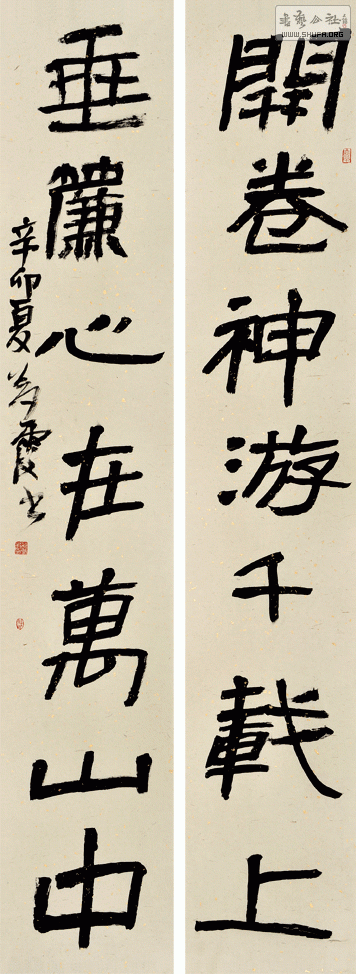 開卷神游千載上
垂簾心在萬山中
辛卯夏
霞书
书艺公社
WWW.SHUFA.ORG